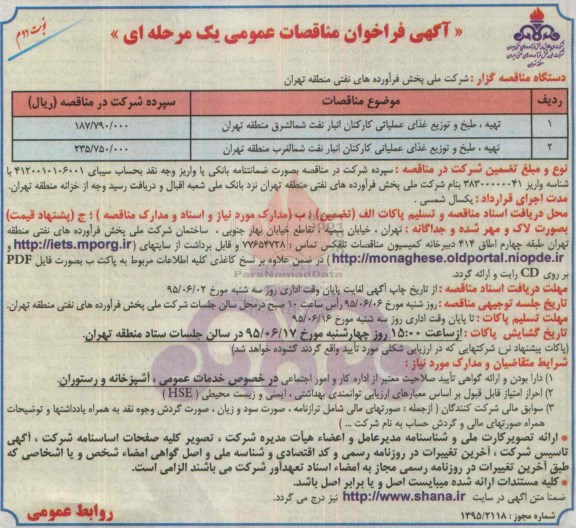 نوبت دوم
« آگهی فراخوان مناقصات عمومی یک مرحله ای »
دستگاه مناقصه گزار : شرکت ملی پخش فرآورده های نفتی منطقه تهران
ردیف موضوع مناقصات سپرده شرکت در مناقصه (ریال)
۱ تهیه ، طبخ و توزیع غذای عملیاتی کارکنان انبار نفت شمالشرق منطقه تهران ۱۸۷/۷۹۰/۰۰۰
۲ تهیه ، طبخ و توزیع غذای عملیاتی کارکنان انبار نفت شمالغرب منطقه تهران ۲۳۵/۷۵۰/۰۰۰
نوع و مبلغ تضمین شرکت در مناقصه : سپرده شرکت در مناقصه بصورت ضمانتنامه بانکی یا واریز وجه نقد بحساب سیبای ۴۱۲۰۰۱۰۱۶۰۰۱ با
شناسه واریز ۳۸۳۰۰۰۰۰۰۴۱ بنام شرکت ملی پخش فرآورده های نفتی منطقه تهران نزد بانک ملی شعبه اقبال و دریافت رسید وجه از خزانه منطقه تهران.
مدت اجرای قرارداد : یکسال شمسی .
محل دریافت اسناد مناقصه و تسلیم پاکات الف (تضمین) ؛ ب (مدارک مورد نیاز و اسناد و مدارک مناقصه ) ؛ ج (پیشنهاد قیمت)
بصورت لاک و مهر شده و جداگانه : تهران ، خیابان سمیه ، تقاطع خیابان بهار جنوبی ، ساختمان شرکت ملی پخش فرآورده های نفتی منطقه
تهران طبقه چهارم اطاق ۴۱۴ دبیرخانه کمیسیون مناقصات تلفکس تماس : ۷۷۶۵۴۷۲۸ و قابل برداشت از سایتهای (http://iets.mporg.ir و
http://monaghese.oldportal.niopde.ir) در ضمن علاوه بر نسخ کاغذی کلیه اطلاعات مربوط به پاکت ب بصورت فایل PDF
بر روی CD رایت و ارائه گردد.
مهلت دریافت اسناد مناقصه : از تاریخ چاپ آگهی لغایت پایان وقت اداری روز سه شنبه مورخ ۹۵/۰۶/۰۲
تاریخ جلسه توجیهی مناقصه : روز شنبه مورخ ۹۵/۰۶/۰۶ رأس ساعت ۱۰ صبح درمحل سالن جلسات شرکت ملی پخش فرآورده های نفتی منطقه تهران.
مهلت تسلیم پاکات : تا پایان وقت اداری روز سه شنبه مورخ ۹۵/۰۶/۱۶
تاریخ گشایش پاکات : از ساعت ۱۵:۰۰ روز چهارشنبه مورخ ۹۵/۰۶/۱۷ در سالن جلسات ستاد منطقه تهران.
(پاکات پیشنهاد نرخ شرکتهایی که در ارزیابی شکلی مورد تأیید واقع گردند گشوده خواهد شد)
شرایط متقاضیان و مدارک مورد نیاز :
۱) دارا بودن و ارائه گواهی تأیید صلاحیت معتبر از اداره کار و امور اجتماعی در خصوص خدمات عمومی ، آشپزخانه و رستوران.
۲) احراز امتیاز قابل قبول بر اساس معیارهای ارزیابی توانمندی بهداشتی ، ایمنی و زیست محیطی ( HSE )
۳) سوابق مالی شرکت کنندگان (ازجمله : صورتهای مالی شامل ترازنامه ، صورت سود و زیان ، صورت گردش وجوه نقد به همراه یادداشتها و توضیحات
همراه صورتهای مالی و گردش حساب به نام شرکت ... )
* ارائه تصویرکارت ملی و شناسنامه مدیرعامل و اعضاء هیأت مدیره شرکت ، تصویر کلیه صفحات اساسنامه شرکت ، آگهی
تاسیس شرکت ، آخرین تغییرات در روزنامه رسمی و کد اقتصادی و شناسه ملی و اصل گواهی امضاء شخص و یا اشخاصی که
طبق آخرین تغییرات در روزنامه رسمی مجاز به امضاء اسناد تعهدآور شرکت می باشند الزامی است.
* کلیه مستندات ارائه شده میبایست اصل و یا برابر اصل باشد.
ضمنا متن آگهی در سایت http://www.shana.ir نیز درج می گردد.
شماره مجوز : ۱۳۹۵/۲۱۱۸
روابط عمومی
ParsNamadData